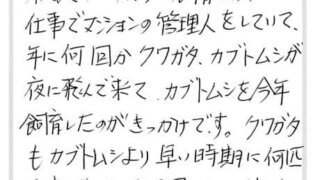 仕事でマンションの管理人をしていて、
年に何回か クワガタ、カブトムシが
夜に飛んで来て、カブトムシを今年
飼育したのがきっかけです。クワガタ
もカブトムシより早い時期に何匹